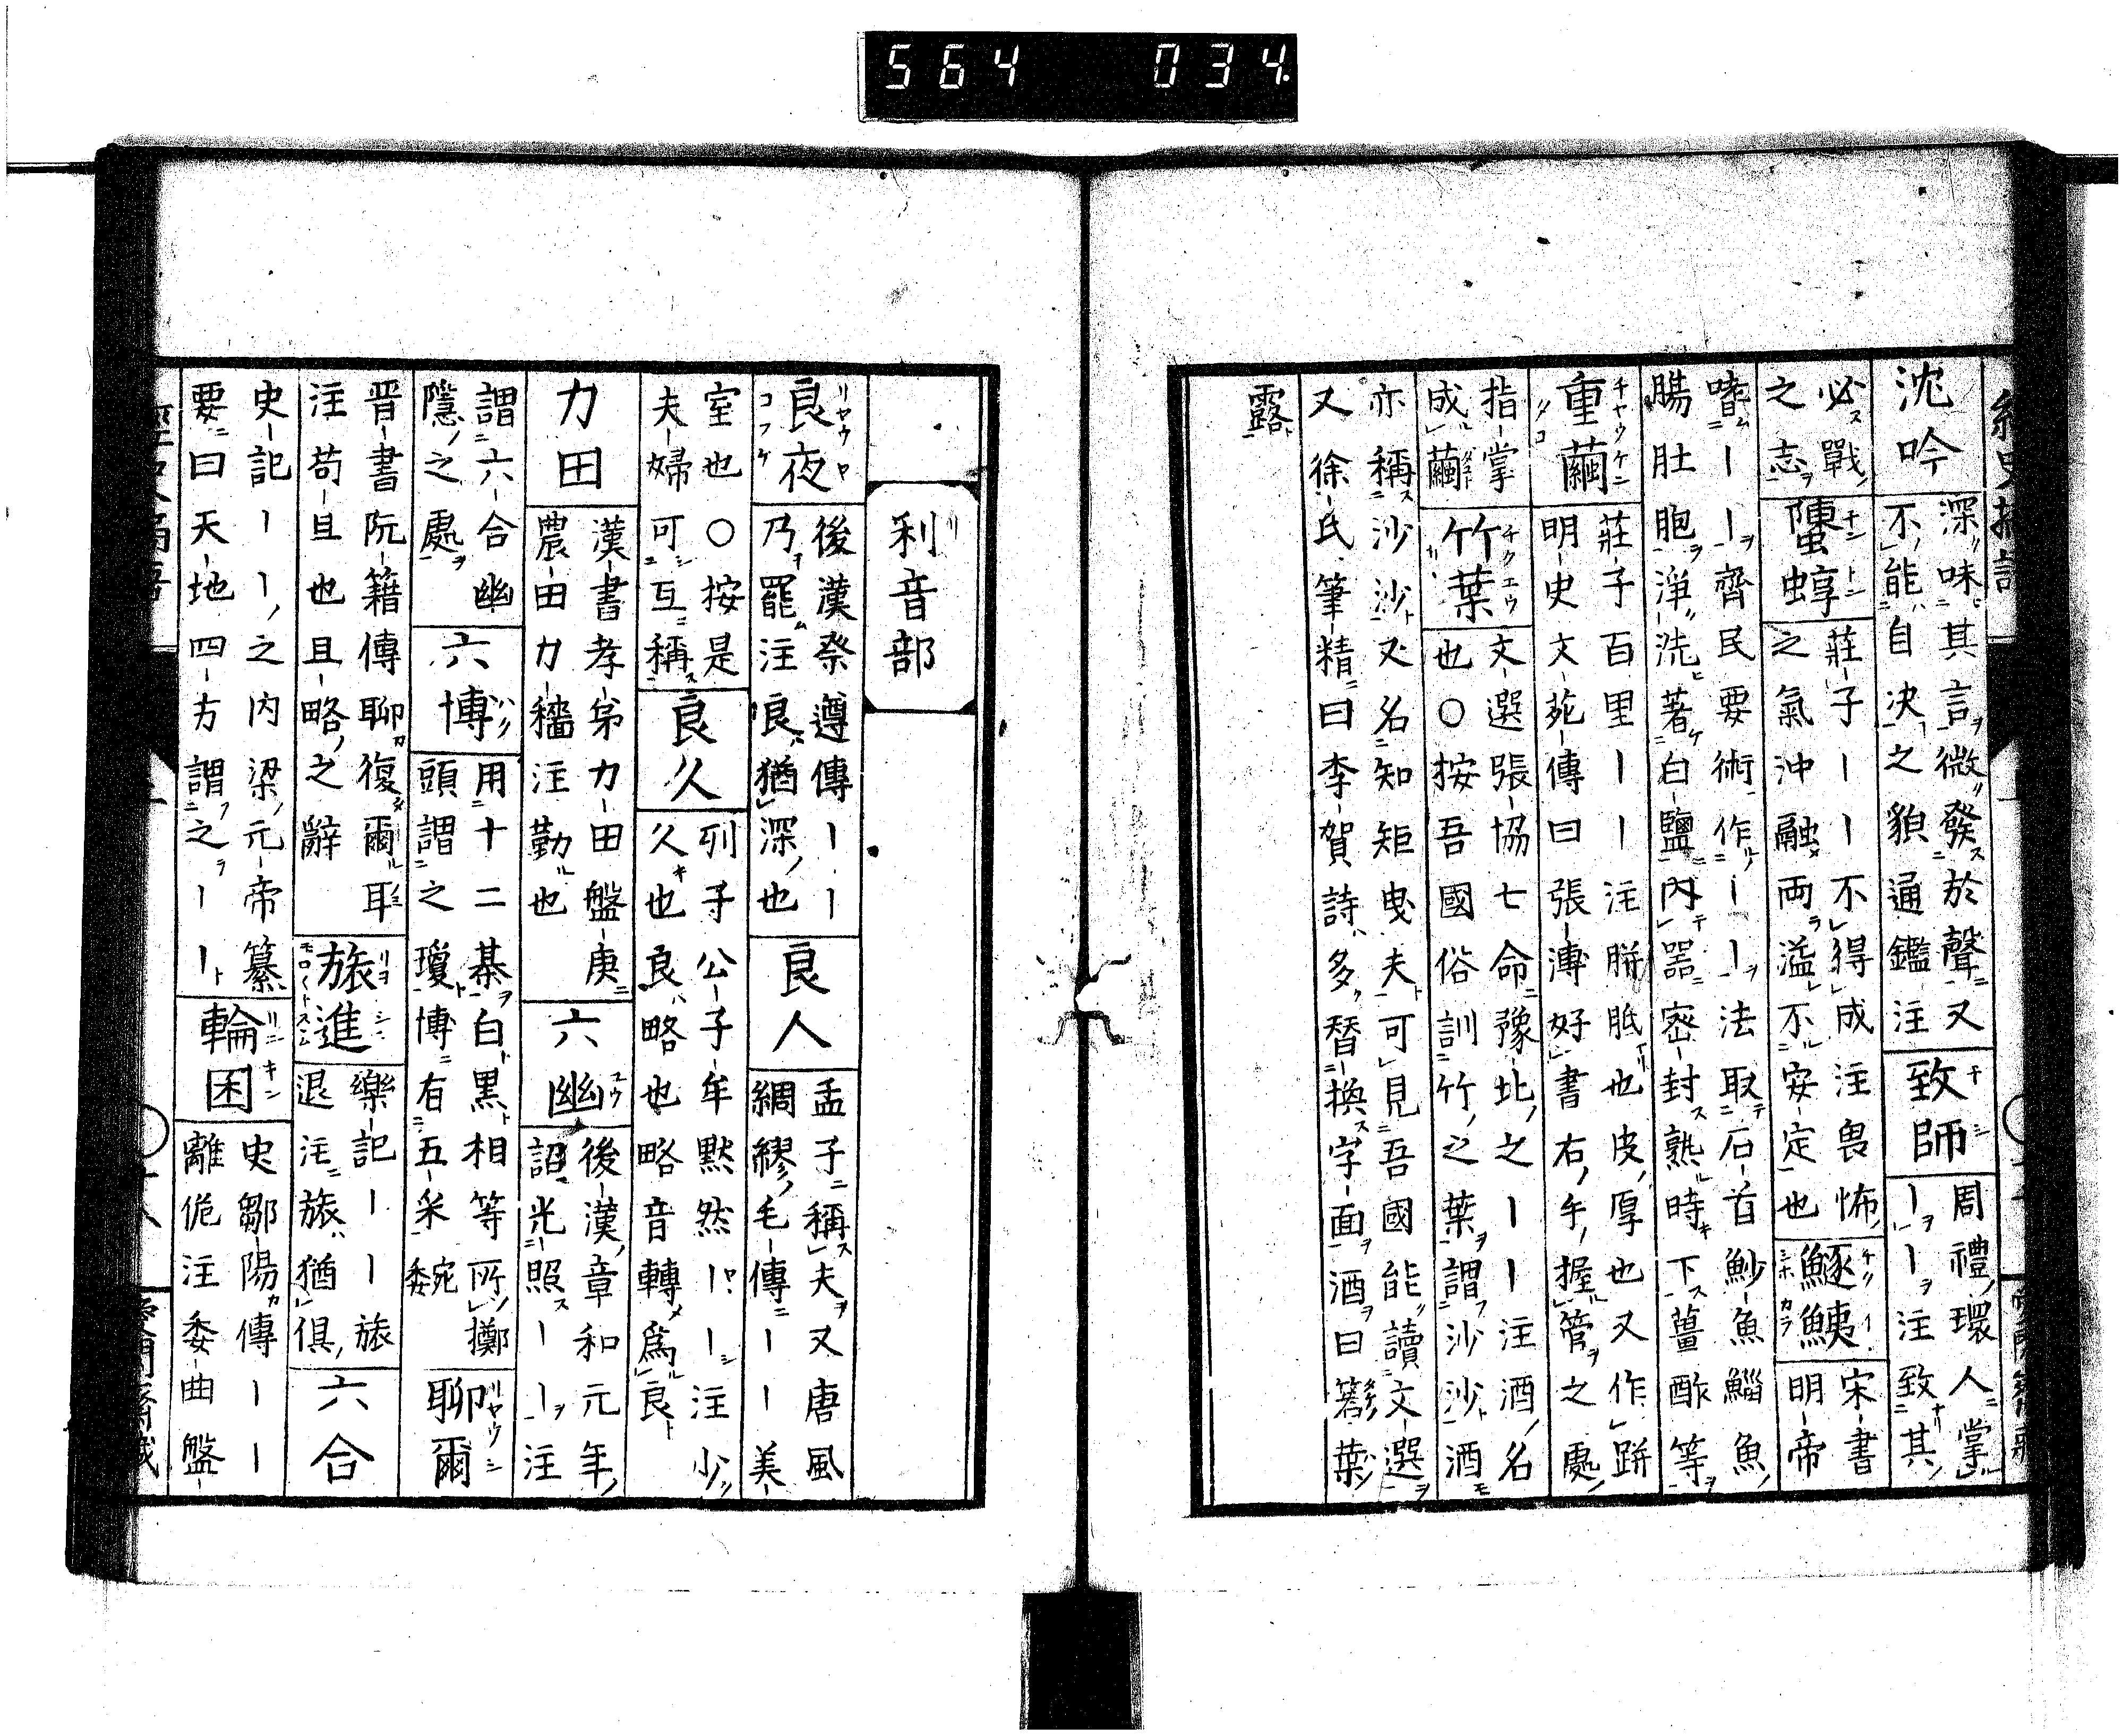 564 034
沈吟
深味其言微發於聲又
不能自決之貌通鑑注
致師
周禮環人掌
｜｜注致其
必戰
之志
蜳
莊子｜｜不得成注畏怖
之氣沖融両溢不安定也
鱁鮧
宋書
明帝
嗜｜｜齊民要術作｜｜法取石首魦魚鯔魚
腸肚胞淨洗著白鹽內器密封熟時下薑酢等
重繭
莊子百里｜｜注胼胝也皮厚也又作跰
明史文苑傳曰張溥好書右手握管之處
指掌
成繭
竹葉
文選張協七命豫北之｜｜注酒名
也○按吾國俗訓竹之葉謂沙沙酒
亦稱沙沙又名知矩曳夫可見吾國能讀文選
又徐氏筆精曰李賀詩多替換字面酒曰箬葉
露
利音部
良夜
後漢祭遵傳｜｜
乃罷注良猶深也
良人
孟子稱夫又唐風
綢繆毛傳｜｜美
室也○按是
夫婦可互稱
良久
列子公子牟默然｜｜注少
久也良略也略音轉爲良
力田
漢書孝弟力田盤庚
農田力穡注勤也
六幽
後漢章和元年
詔光照｜｜注
謂六合幽
隱之處
六博
用十二棊白黒相等所擲
頭謂之瓊博有五采
聊爾
晋書阮籍傳聊復爾耳
注苟且也且略之辭
旅進
樂記｜｜旅
退注旅猶俱
六合
史記｜｜之內梁元帝纂
要曰天地四方謂之｜｜
輪囷
史鄒陽傳｜｜
離佹注委曲盤